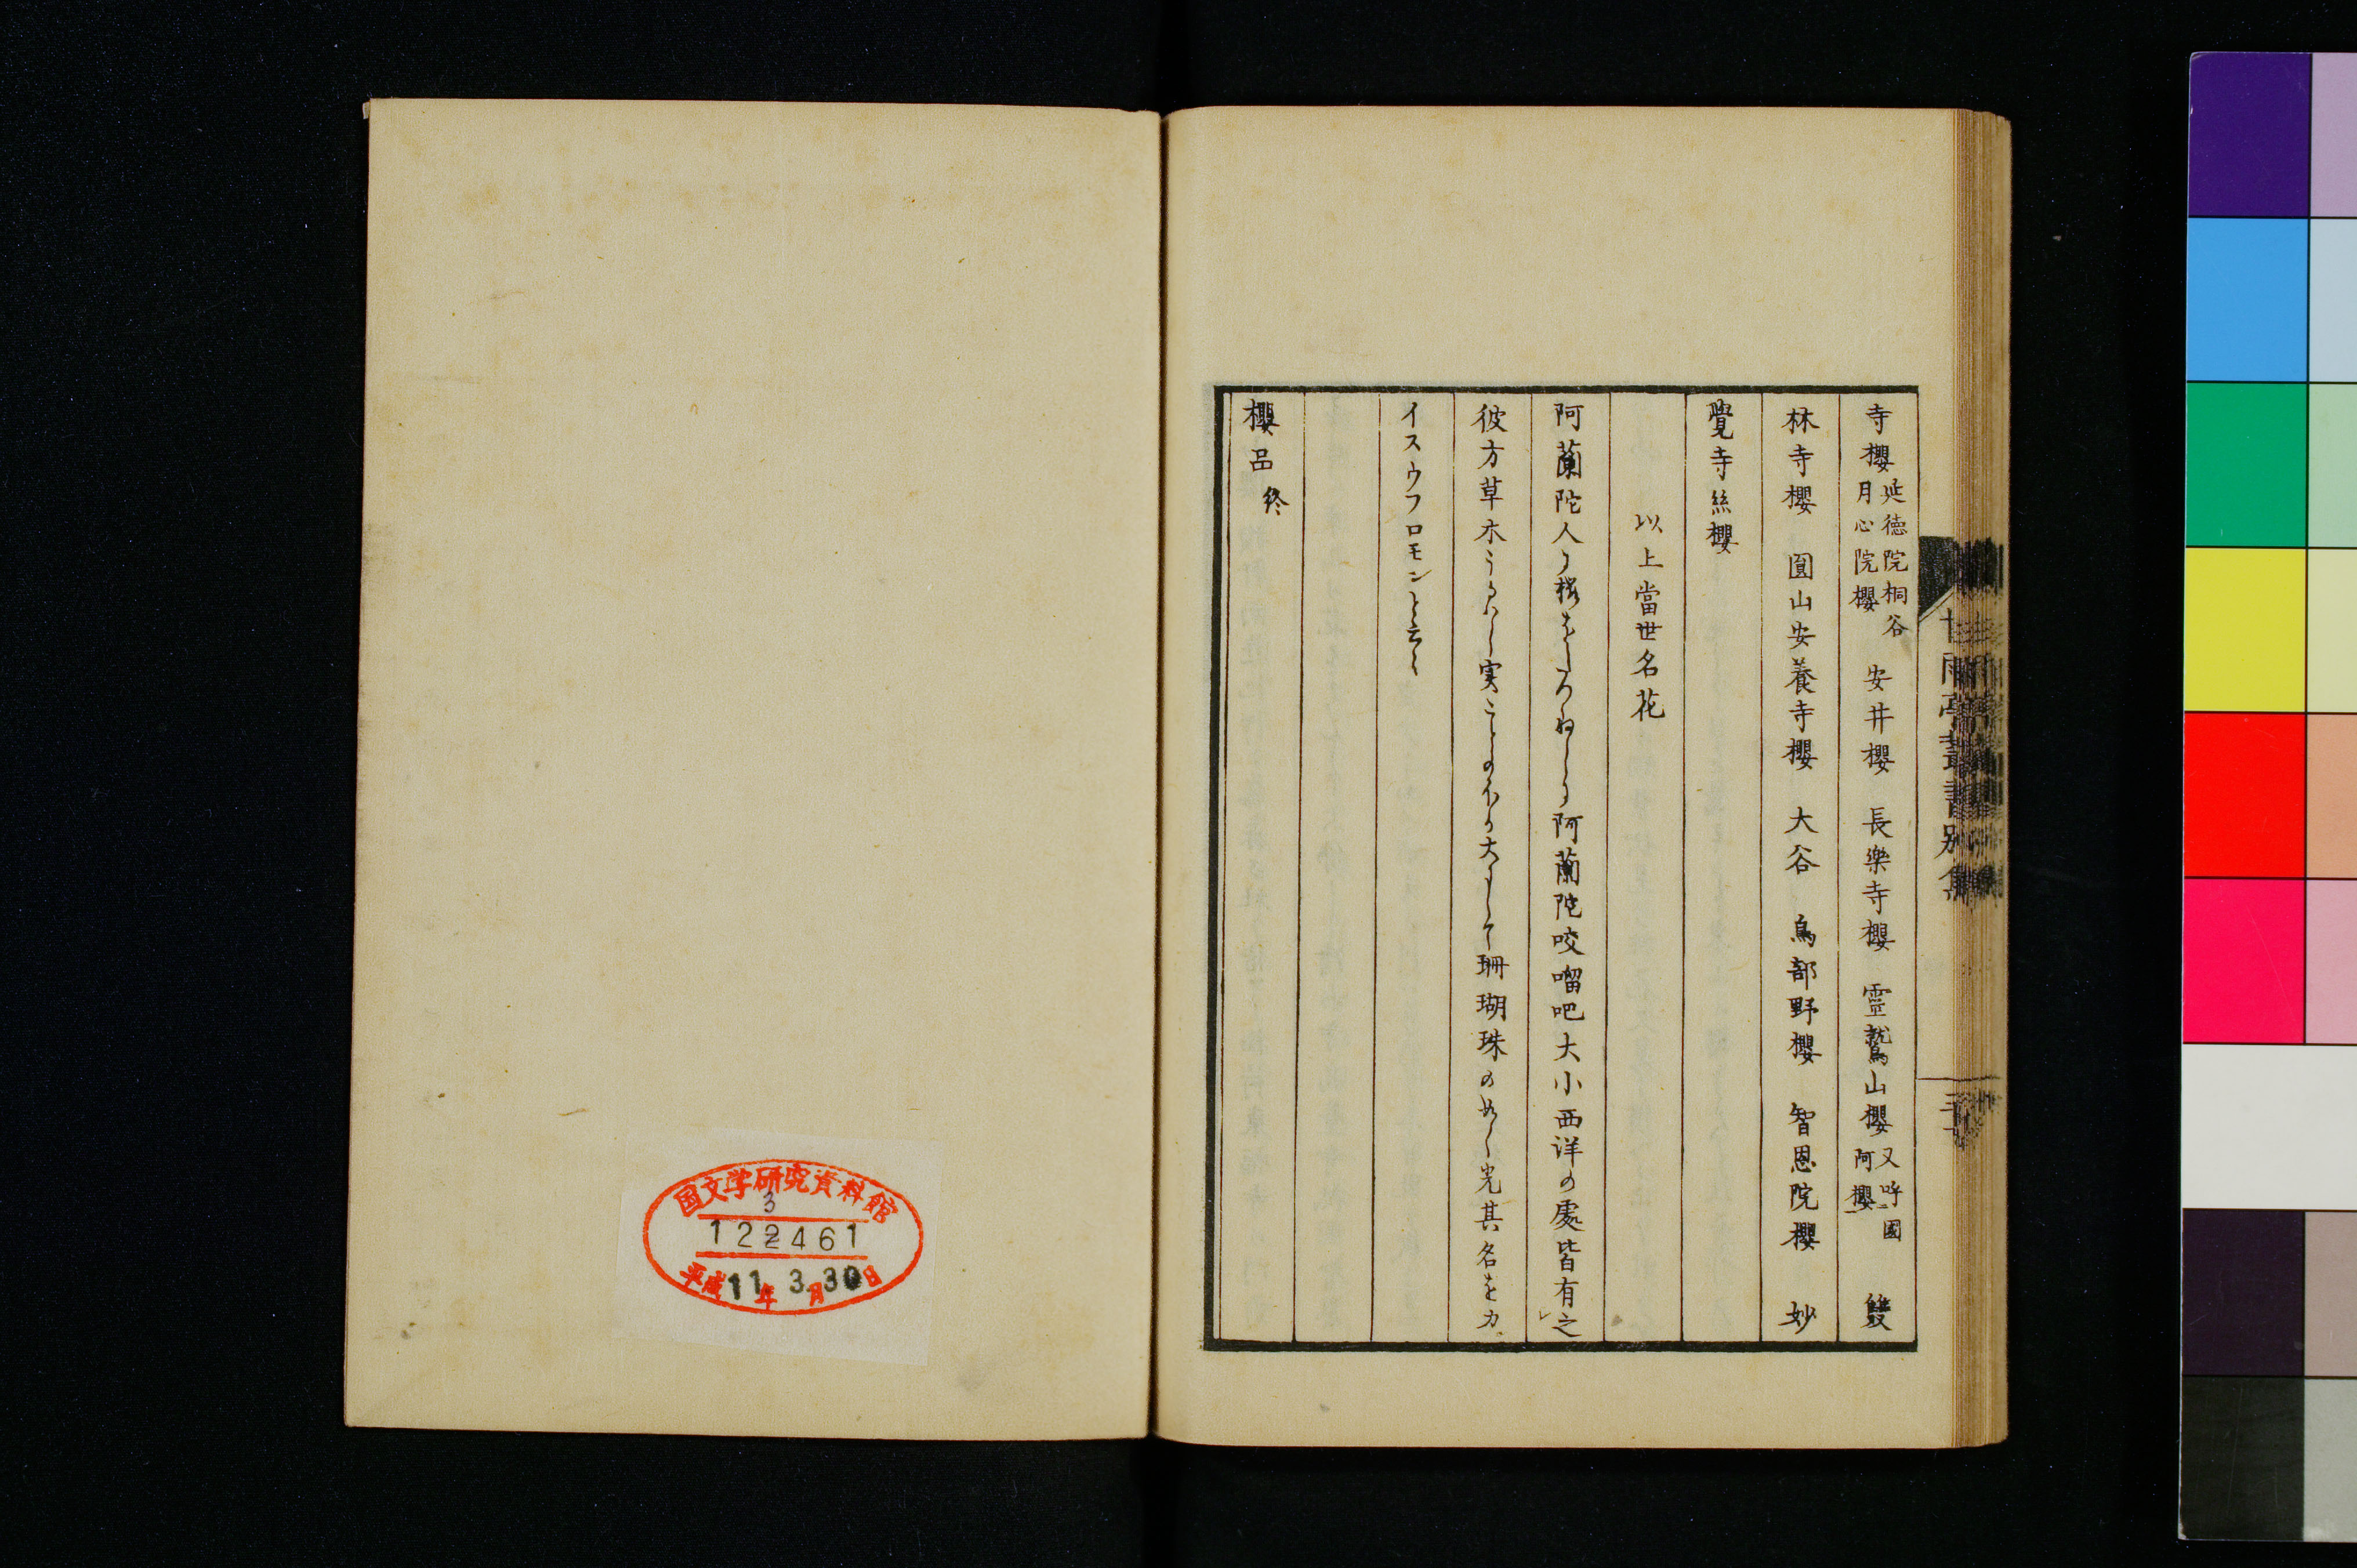 寺櫻 延徳院桐谷
月心院櫻 安井櫻 長楽寺櫻 靈鷲山櫻 又呼國
阿櫻 雙
林寺櫻 圓山安養寺櫻 大谷 鳥部野櫻 智恩院櫻 妙
覺寺絲櫻
以上當世名花
阿蘭陀人 阿蘭陀咬𠺕吧大小西洋の處皆有之
彼方草木うるハし実ことの外大にして珊瑚珠の如く光其名をカ
イスウフロモンと云々
櫻品 終
甘雨亭叢書別集
国文学研究資料館
3
122461
平成11年3月30日